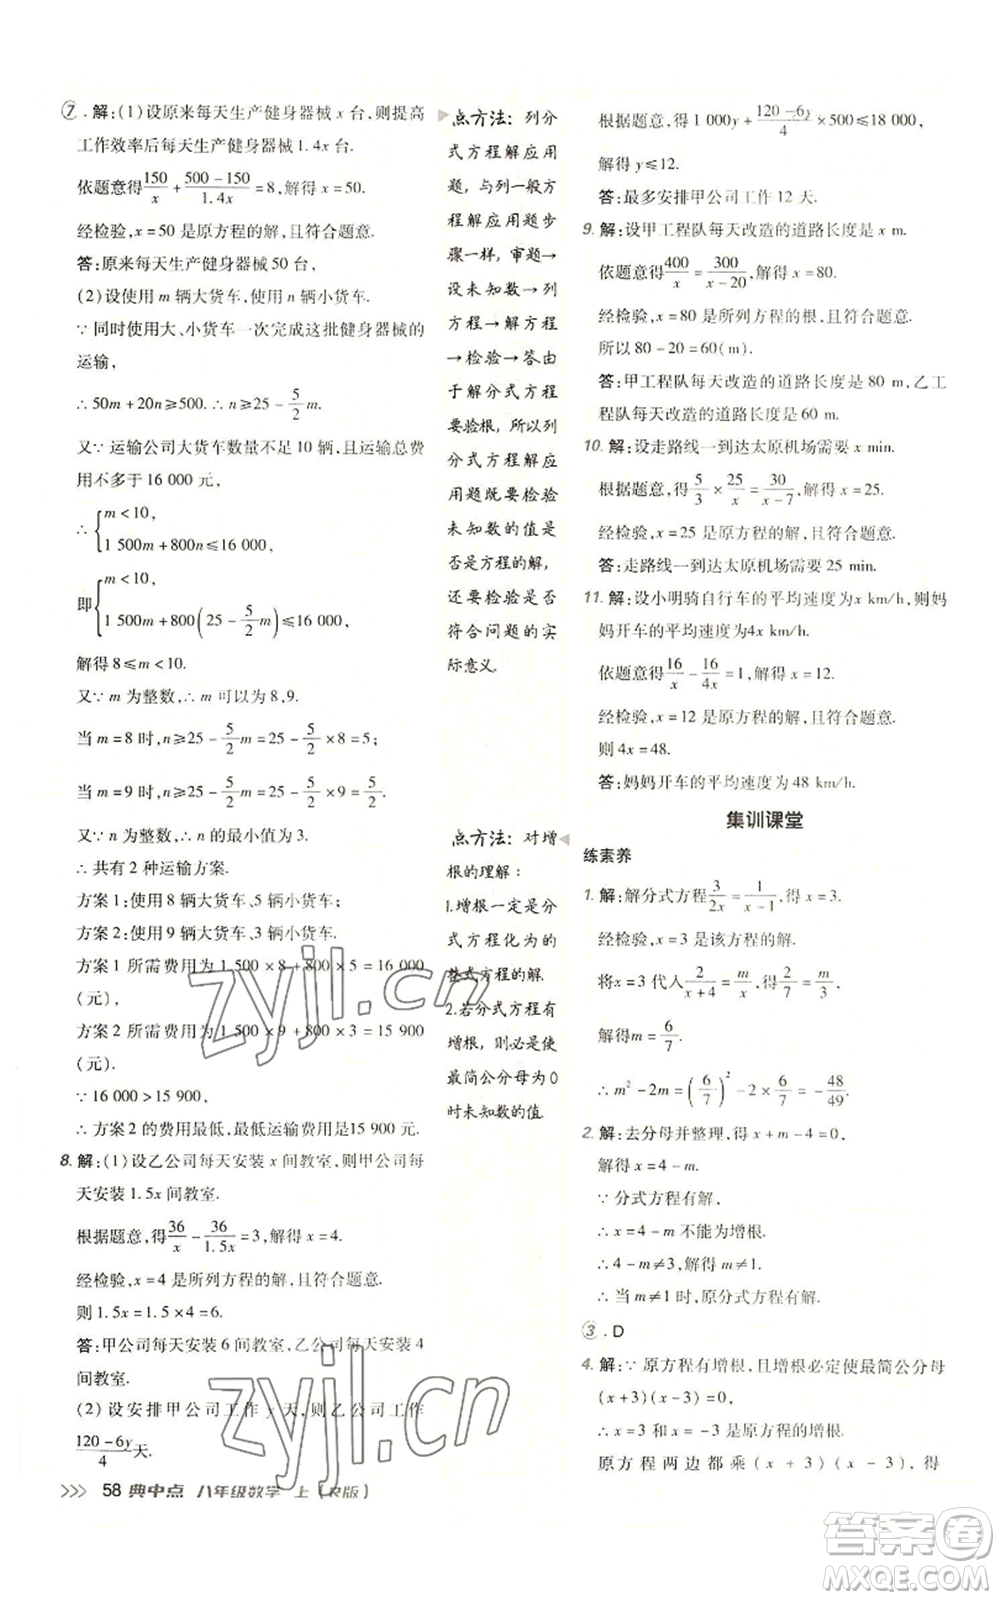 ⑦. 解:(1)设原来每天生产健身器械 x 台,则提高
工作效率后每天生产健身器械 1.4x 台.
依题意得 150/x + (500-150)/1.4x = 8,解得 x = 50.
经检验, x = 50 是原方程的解,且符合题意.
答:原来每天生产健身器械 50 台,
(2)设使用 m 辆大货车,使用 n 辆小货车.
∵ 同时使用大、小货车一次完成这批健身器械的
运输,
∴ 50m + 20n ≥ 500. ∴ n ≥ 25 - 5/2 m.
又∵ 运输公司大货车数量不足 10 辆,且运输总费
用不多于 16 000 元,
∴ { m < 10,
1 500m + 800n ≤ 16 000,
即 { m < 10,
1 500m + 800(25 - 5/2 m) ≤ 16 000,
解得 8 ≤ m < 10.
又∵ m 为整数, ∴ m 可以为 8,9.
当 m = 8 时, n ≥ 25 - 5/2 m = 25 - 5/2 × 8 = 5;
当 m = 9 时, n ≥ 25 - 5/2 m = 25 - 5/2 × 9 = 5/2.
又∵ n 为整数, ∴ n 的最小值为 3.
∴ 共有 2 种运输方案.
方案 1:使用 8 辆大货车、5 辆小货车;
方案 2:使用 9 辆大货车、3 辆小货车.
方案 1 所需费用为 1 500 × 8 + 800 × 5 = 16 000
(元),
方案 2 所需费用为 1 500 × 9 + 800 × 3 = 15 900
(元).
∵ 16 000 > 15 900,
∴ 方案 2 的费用最低,最低运输费用是15 900 元.
8. 解:(1)设乙公司每天安装 x 间教室,则甲公司每
天安装 1.5x 间教室.
根据题意,得 36/x - 36/1.5x = 3,解得 x = 4.
经检验, x = 4 是所列方程的解,且符合题意.
则 1.5x = 1.5 × 4 = 6.
答:甲公司每天安装 6 间教室,乙公司每天安装 4
间教室.
(2)设安排甲公司工作 y 天,则乙公司工作
(120-6y)/4 天.
点方法:列分
式方程解应用
题,与列一般方
程解应用题步
骤一样,审题→
设未知数→列
方程→解方程
→检验→答.由
于解分式方程
要验根,所以列
分式方程解应
用题既要检验
未知数的值是
否是方程的解,
还要检验是否
符合问题的实
际意义.
点方法:对增
根的理解:
1.增根一定是分
式方程化为的
整式方程的解.
2.若分式方程有
增根,则必是使
最简公分母为 0
时未知数的值.
根据题意,得 1 000y + (120-6y)/4 × 500 ≤ 18 000,
解得 y ≤ 12.
答:最多安排甲公司工作 12 天.
9. 解:设甲工程队每天改造的道路长度是 x m.
依题意得 400/x = 300/(x-20),解得 x = 80.
经检验, x = 80 是所列方程的根,且符合题意.
所以 80 - 20 = 60(m).
答:甲工程队每天改造的道路长度是 80 m,乙工
程队每天改造的道路长度是 60 m.
10. 解:设走路线一到达太原机场需要 x min.
根据题意,得 5/3 × 25/x = 30/(x-7),解得 x = 25.
经检验, x = 25 是原方程的解,且符合题意.
答:走路线一到达太原机场需要 25 min.
11. 解:设小明骑自行车的平均速度为x km/h,则妈
妈开车的平均速度为4x km/h.
依题意得 16/x - 16/4x = 1,解得 x = 12.
经检验, x = 12 是原方程的解,且符合题意.
则 4x = 48.
答:妈妈开车的平均速度为 48 km/h.
集训课堂
练素养
1. 解:解分式方程 3/2x = 1/(x-1),得 x = 3.
经检验, x = 3 是该方程的解.
将x = 3 代入 2/(x+4) = m/x,得 2/7 = m/3,
解得m = 6/7.
∴ m² - 2m = (6/7)² - 2 × 6/7 = -48/49.
2. 解:去分母并整理,得 x + m - 4 = 0,
解得 x = 4 - m.
∵ 分式方程有解,
∴ x = 4 - m 不能为增根.
∴ 4 - m ≠ 3,解得 m ≠ 1.
∴ 当 m ≠ 1 时,原分式方程有解.
③. D
4. 解:∵ 原方程有增根,且增根必定使最简公分母
(x+3)(x-3) = 0,
∴ x = 3 和 x = -3 是原方程的增根.
原方程两边都乘(x+3)(x-3),得
>>> 58 典中点 八年级数学 上(R版)
zyjl.cn
zyjl.cn
答案圈
MXQE.COM